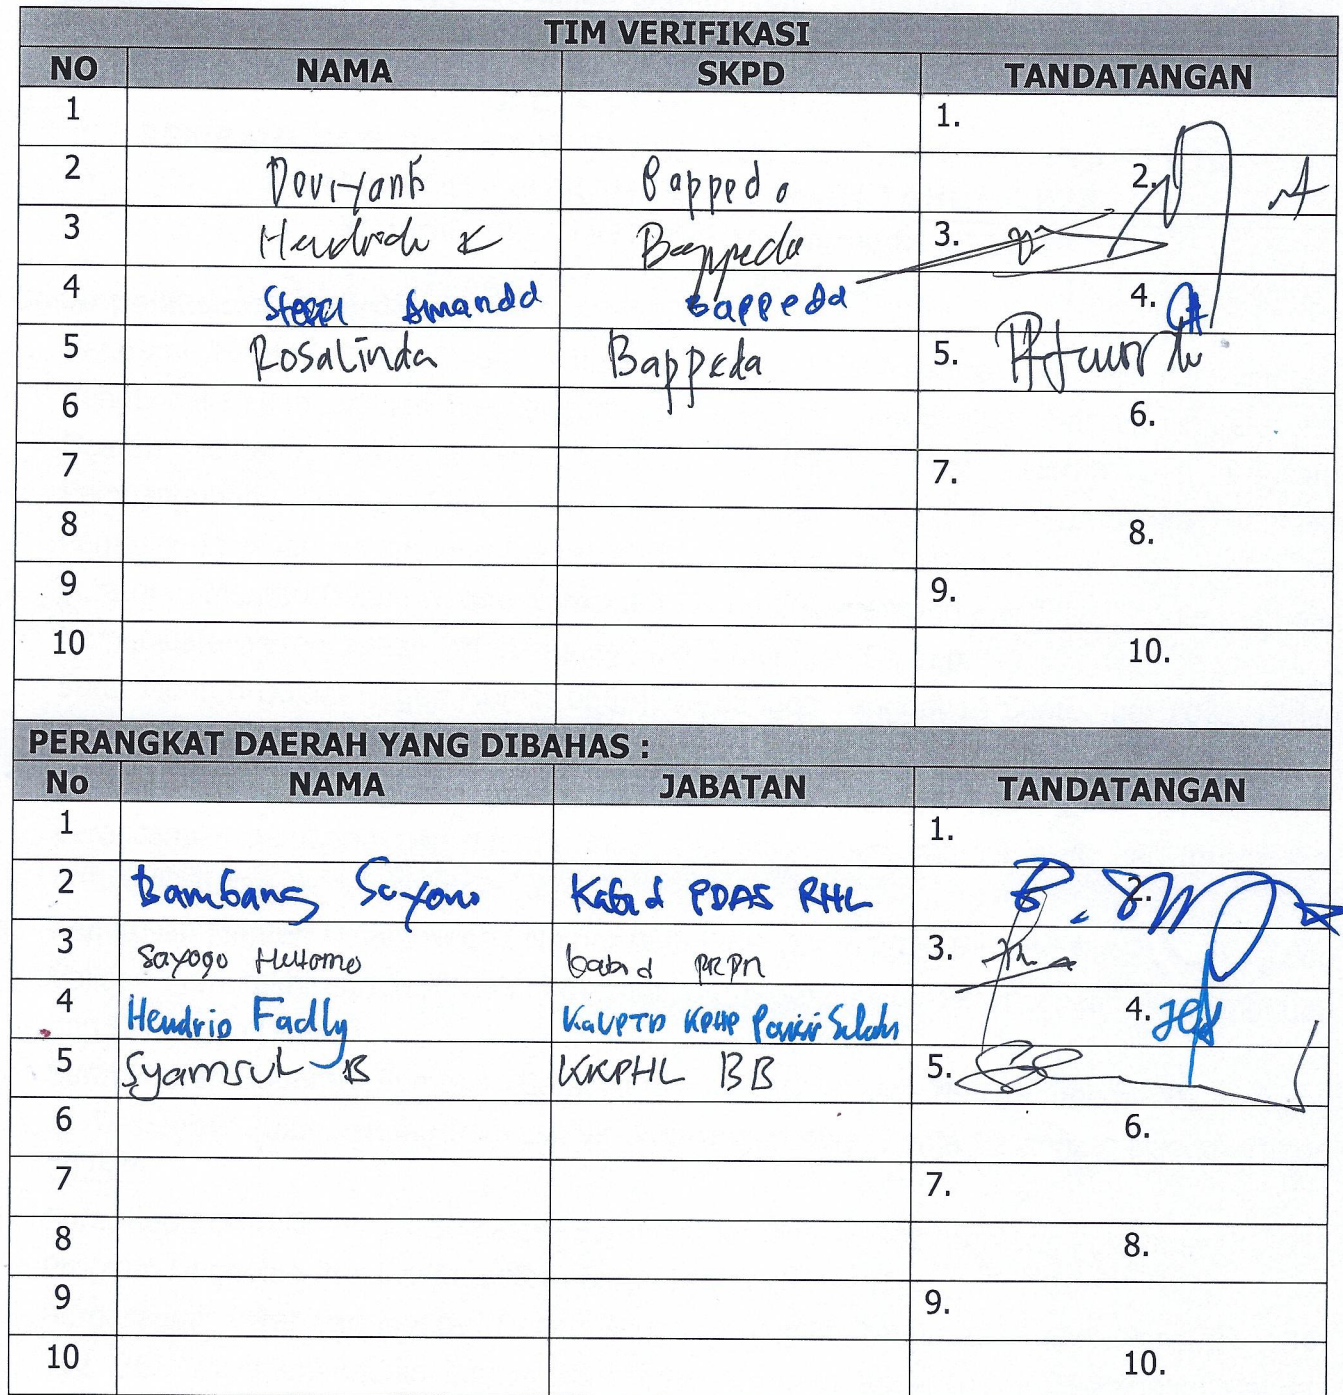 TIM VERIFIKASI
NO NAMA SKPD TANDATANGAN
1 1.
2 Deviyanti Bappeda 2.
3 Hendrich K Bappeda 3.
4 Amanda Bappeda 4.
5 Rosalinda Bappeda 5.
6 6.
7 7.
8 8.
9 9.
10 10.
PERANGKAT DAERAH YANG DIBAHAS :
No NAMA JABATAN TANDATANGAN
1 1.
2 Bambang Suyono Kabid PDAS RHL 2.
3 Sayogo Hutomo kabid PRPM 3.
4 Hendrio Fadly KaUPTD KPHP Pesisir Selatan 4.
5 Syamsul B KKPHL BB 5.
6 6.
7 7.
8 8.
9 9.
10 10.